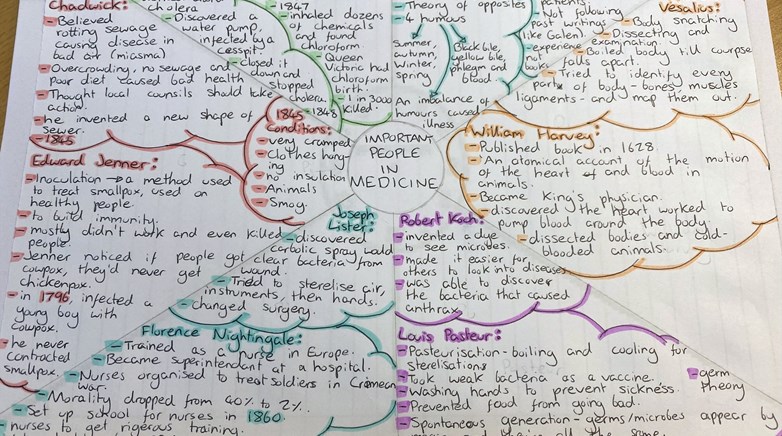 Chadwick:
Believed
rotting sewage
causing disease in
bad air (miasma)
Overcrowding, no sewage and
poor diet caused bad health
Thought local counsils should take
action.
he invented a new shape of
sewer.
1845
cholera
Discovered a
water pump,
infected by a
cesspit.
closed it
down and
stopped
cholera.
1848
1847
inhaled dozens
of chemicals
and found
chloroform
Queen
Victoria had
chloroform
birth.
1 in 3000
killed.
Theory of opposites
4 humours
Summer,
autumn,
winter,
spring
Black bile,
yellow bile,
phlegm and
blood
An imbalance of
humours caused
illness
patients.
Not following
past writings
(like Galen).
experience
not
books
Vesalius:
Body snatching
Dissecting and
examination.
Boiled body till courpse
falls apart.
Tried to identify every
part of body - bones, muscles
ligaments - and map them out.
1845
Conditions:
very cramped
Clothes hang-
ing
no insulation
Animals
Smog.
IMPORTANT
PEOPLE
IN
MEDICINE
William Harvey:
Published book in 1628.
An atomical account of the motion
of the heart and blood in
animals.
Became King's physician.
discovered the heart worked to
pump blood around the body.
dissected bodies and cold-
blooded animals.
Edward Jenner:
Inoculation → a method used
to treat smallpox, used on
healthy people.
to build immunity.
mostly didn't work and even killed
people.
Jenner noticed if people got
cowpox, they'd never get
chickenpox.
in 1796, infected a
young boy with
cowpox.
he never
contracted
smallpox.
Joseph
Lister:
discovered
carbolic spray would
clear bacteria from
wound.
Tried to sterelise air,
instruments, then hands.
changed surgery.
Robert Koch:
invented a dye
to see microbes.
made it easier for
others to look into diseases
was able to discover
the bacteria that caused
anthrax
Florence Nightingale:
Trained as a nurse in Europe.
Became superintendant at a hospital.
Nurses organised to treat soldiers in Crimean
war.
Morality dropped from 40% to 2%.
Set up school for nurses in 1860
nurses to get rigerous training.
Louis Pasteur:
Pasteurisation - boiling and cooling for
sterelisations
Took weak bacteria as a vaccine.
Washing hands to prevent sickness.
Prevented food from going bad.
germ
theory
Spontaneous generation - germs/microbes appear by